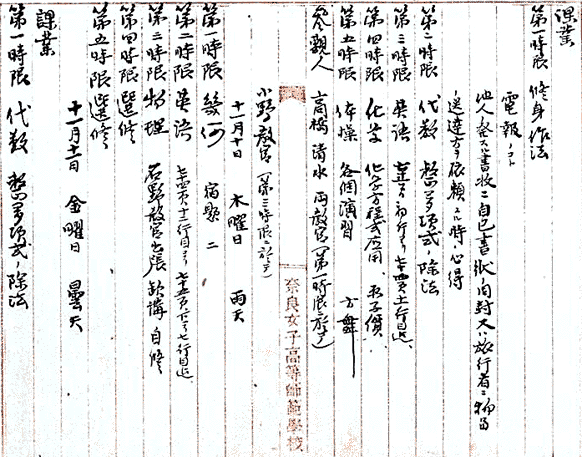 課業
第一時限 修身作法
電報ノコト
他人ヘ発スル書状ニ自己ノ書状同封又ハ旅行者ニ物品
送達方ヲ依頼スル時ノ心得
第二時限 代数 整多項式ノ除法
第三時限 英語 七三頁初行ヨリ七四頁十一行目迄、
第四時限 化学 化学方程式応用、原子価、
第五時限 体操 各個演習 方舞
参観人 高橋 清水 両教官(第一時限ニ於テ)
小野教官(第三時限ニ於テ)
十一月十日 木曜日 雨天
第一時限 幾何 宿題 二
第二時限 英語 七四頁十二行目ヨリ七十五頁下ヨリ七行目迄
第三時限 物理 石野教官出張 欠講 自修
第四時限 選修
第五時限 選修
十一月十一日 金曜日 曇天
課業
第一時限 代数 整多項式ノ除法
奈良女子高等師範学校